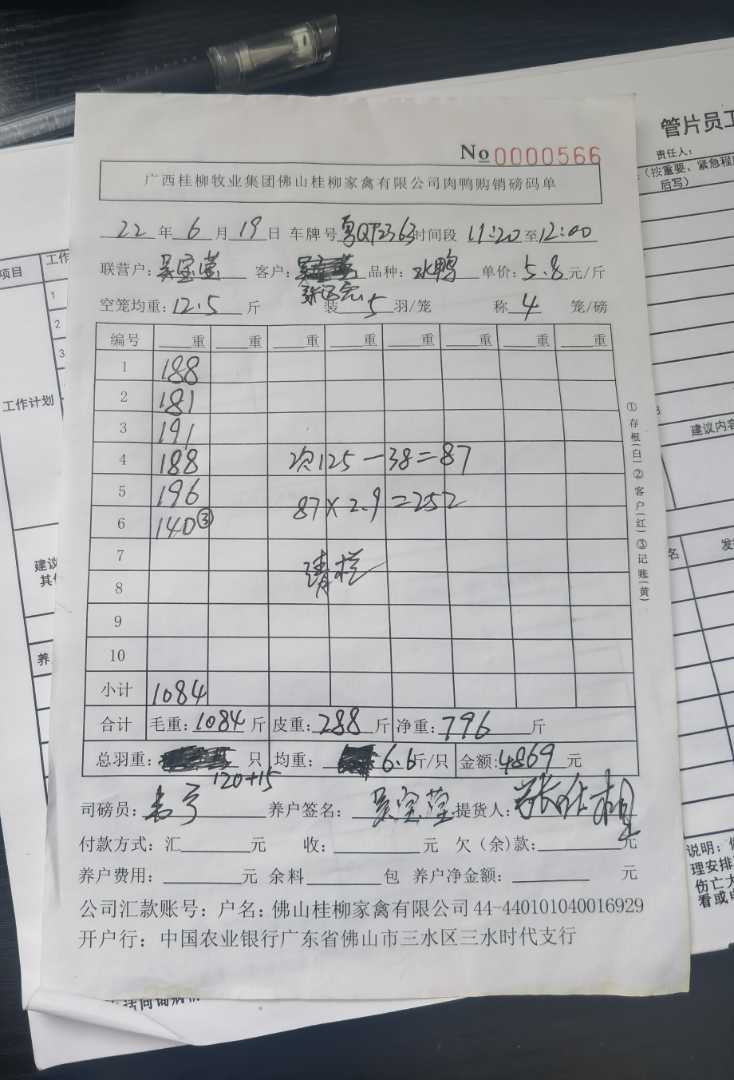 No 0000566
广西桂柳牧业集团佛山桂柳家禽有限公司肉鸭购销磅码单
22年6月19日 车牌号粤QT2363时间段11:20至12:00
联营户:吴宝莹 客户: 品种:水鸭 单价:5.8元/斤
空笼均重:12.5斤 装5羽/笼 称4笼/磅
编号 重 重 重 重 重 重 重 重
1 188
2 181
3 191
4 188 次125-38=87
5 196 87×2.9=252
6 140③
7
清栏
8
9
10
小计 1084
合计 毛重:1084斤 皮重:288斤 净重:796斤
总羽重: 只 均重:6.6斤/只 金额:4869元
120+15
司磅员: 养户签名:吴宝莹 提货人:
付款方式:汇 元 收: 元 欠(余)款: 元
养户费用: 元 余料 包 养户净金额: 元
公司汇款账号:户名:佛山桂柳家禽有限公司44-440101040016929
开户行:中国农业银行广东省佛山市三水区三水时代支行
①存根(白)②客户(红)③记账(黄)
管片员工
责任人:
(按重要、紧急程度
后写)
建议内容
项目 工作
1
2
3
工作计划
建议
其他
养
名
说明:
理安排
伤亡大
看或电